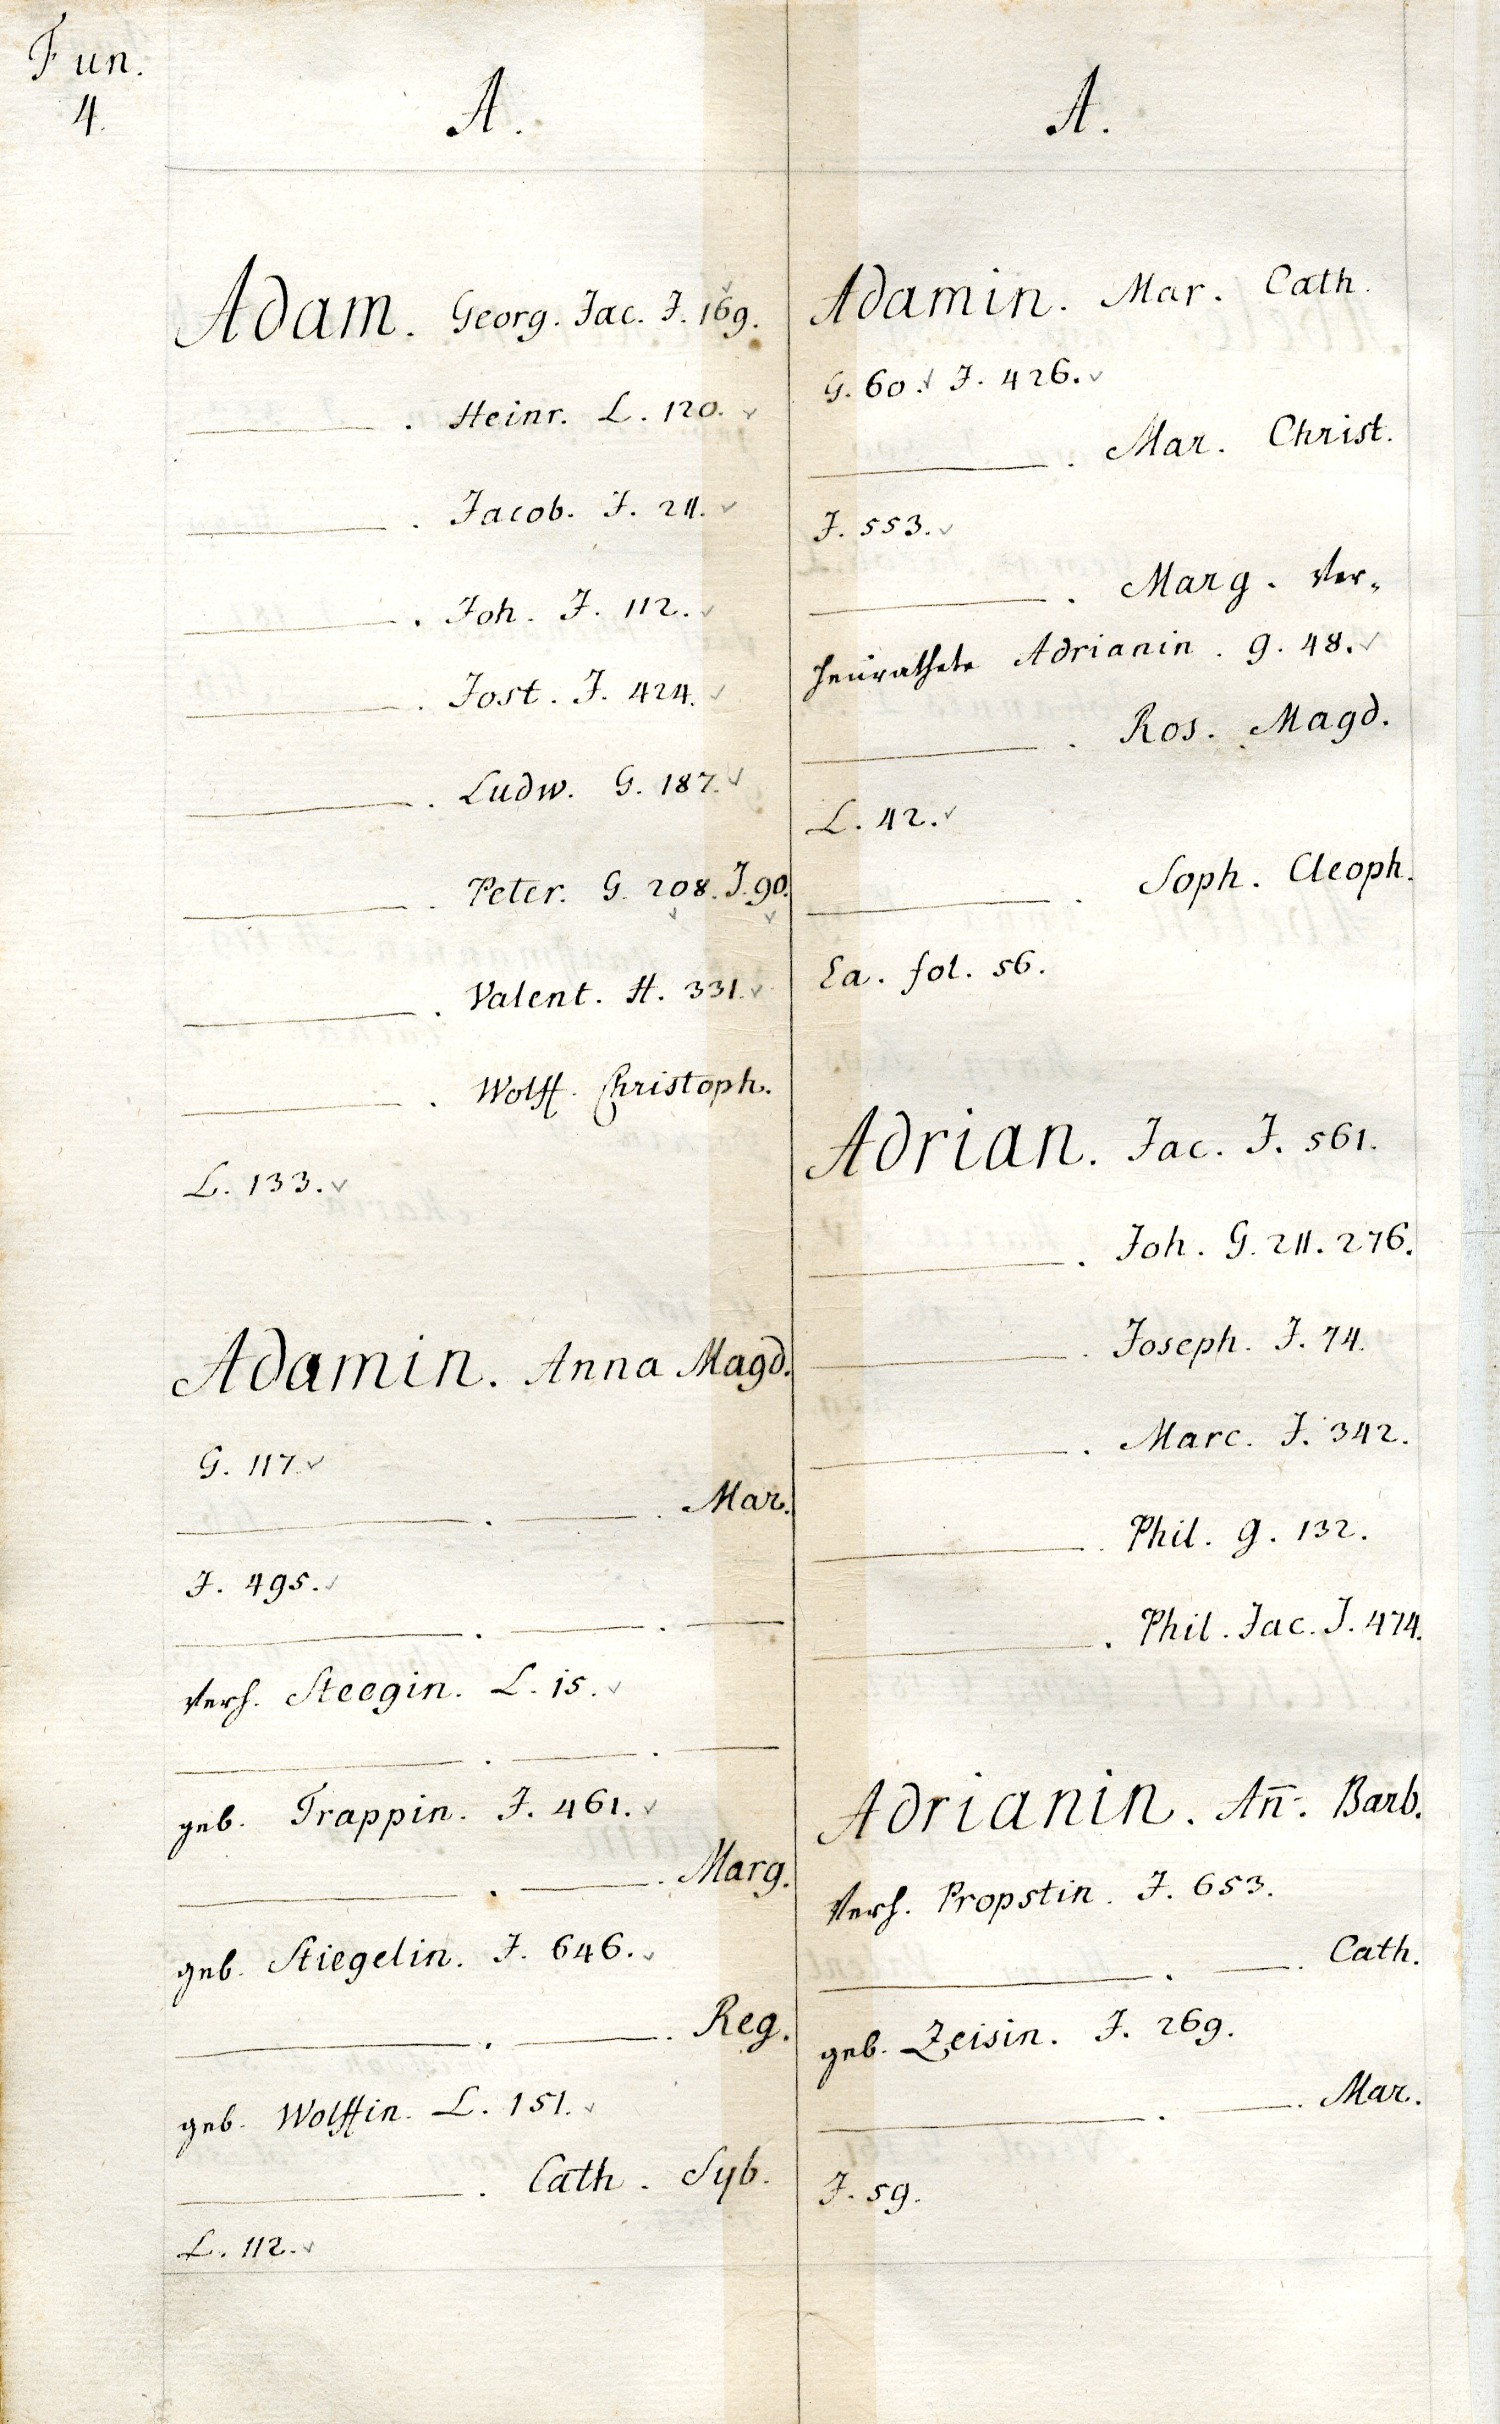 Fun.
4.
A.
Adam. Georg. Jac. J. 169.
———. Heinr. L. 120.
———. Jacob. J. 211.
———. Joh. J. 112.
———. Jost. J. 424.
———. Ludw. G. 187.
———. Peter. G. 208. J. 90.
———. Valent. H. 331.
———. Wolff. Christoph.
L. 133.
Adamin. Anna Magd.
G. 117.
———. ———. Mar.
J. 495.
———. ———. ———
verh. Steegin. L. 15.
———. ———. ———
geb. Trappin. J. 461.
———. ———. Marg.
geb. Stiegelin. J. 646.
———. ———. Reg.
geb. Wolffin. L. 151.
———. Cath. Syb.
L. 112.
A.
Adamin. Mar. Cath.
G. 60. J. 426.
———. Mar. Christ.
J. 553.
———. Marg. Ver„
heurathete Adrianin. g. 48.
———. Ros. Magd.
L. 42.
———. Soph. Cleoph.
Ea. fol. 56.
Adrian. Jac. J. 561.
———. Joh. G. 211. 276.
———. Joseph. J. 74.
———. Marc. J. 342.
———. Phil. g. 132.
———. Phil. Jac. J. 474.
Adrianin. An̄. Barb.
Verh. Propstin. J. 653.
———. ———. Cath.
geb. Zeisin. J. 269.
———. ———. Mar.
J. 59.